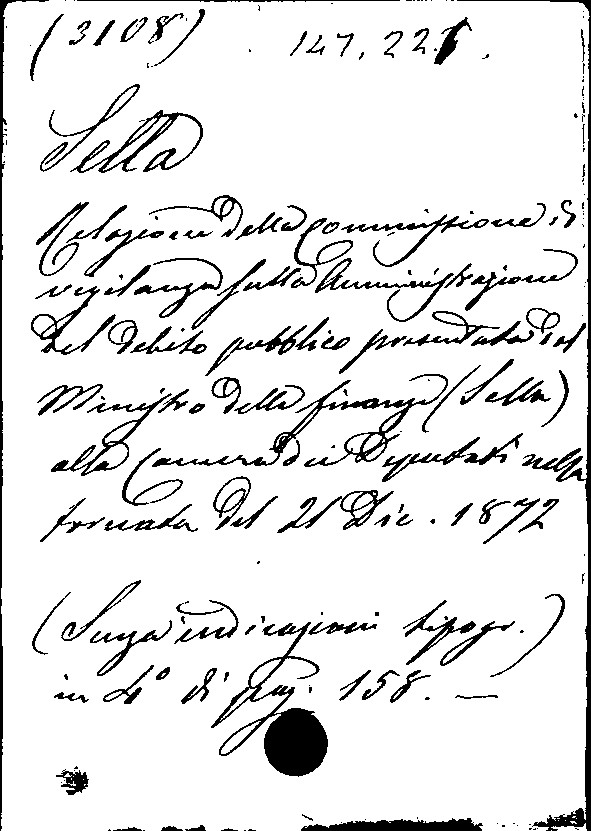 (3108) 147.22.1.
Sella
Relazione della Commissione di
vigilanza sulla Amministrazione
del debito pubblico presentata dal
Ministro delle finanze (Sella)
alla Camera dei Deputati nella
tornata del 21 Dic. 1872
(Senza indicazioni tipogr.)
in 4° di pag. 158. —